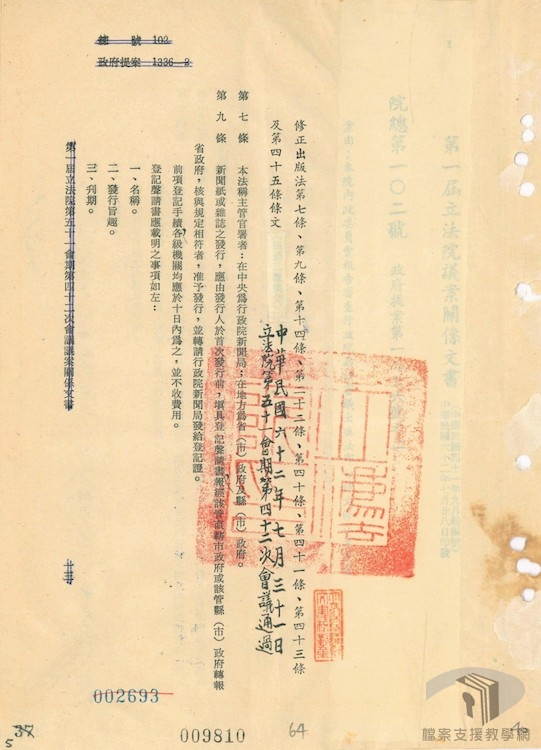 總 號 102
政府提案 1336-2
修正出版法第七條、第九條、第十四條、第二十二條、第四十條、第四十一條、第四十三條
及第四十五條條文
中華民國六十二年七月三十一日
立法院第五十一會期第四十二次會議通過
第七條 本法稱主管官署者：在中央為行政院新聞局；在地方為省（市）政府及縣（市）政府。
第九條 新聞紙或雜誌之發行，應由發行人於首次發行前，填具登記聲請書報經該管直轄市政府或該管縣（市）政府轉報
省政府，核與規定相符者，准予發行，並轉請行政院新聞局發給登記證。
前項登記手續各級機關均應於十日內為之，並不收費用。
登記聲請書應載明之事項如左：
一、名稱。
二、發行旨趣。
三、刊期。
第一屆立法院第五十一會期第四十二次會議議案關係文書
第一屆立法院議案關係文書
院總第一〇二號
002693
009810
64
5
37
檔案支援教學網